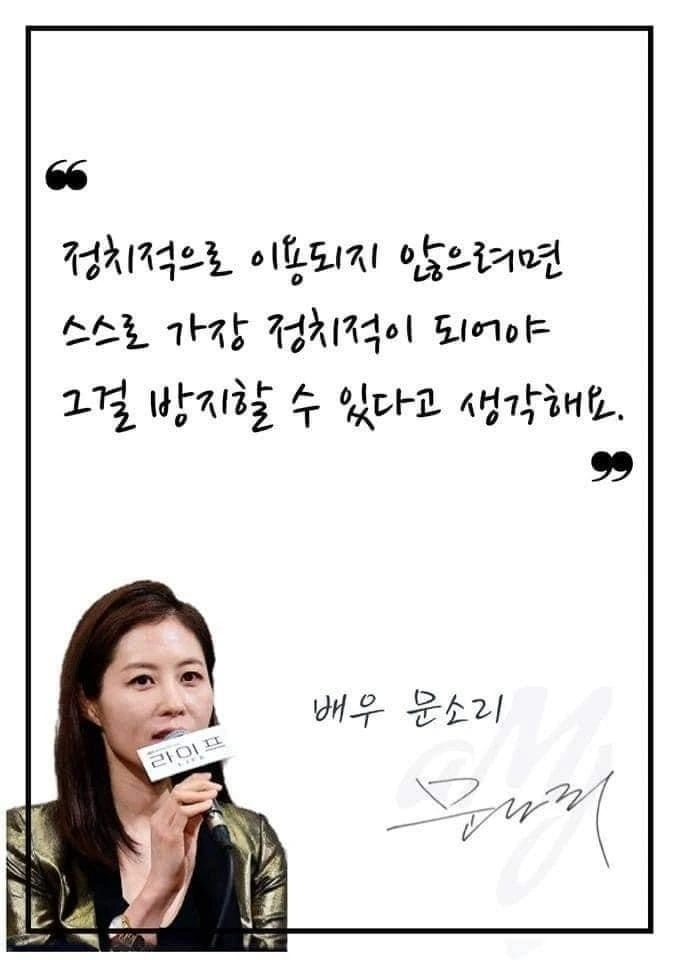 “
정치적으로 이용되지 않으려면
스스로 가장 정치적이 되어야
그걸 방지할 수 있다고 생각해요.
”
배우 문소리
라이프
LIFE
문소리